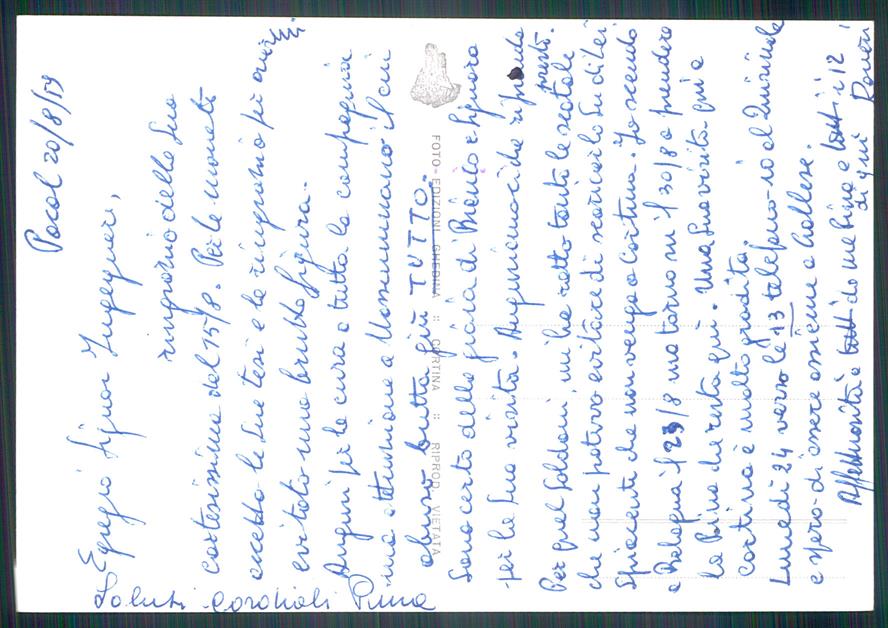 Pocol 20/8/59
Egregio Signor Ingegnere,
ringrazio della Sua
cortesissima del 15/8. Per le monete
accetto le Sue tesi e la ringrazio per avermi
evitato una brutta figura.
Auguri per la cura a tutta la compagnia
ma attenzione a Monsummano il cui
abuso butta giù TUTTO.
Sono certo della gioia di Bianco e Signora
per la Sua visita. Auguriamoci che si prenda
presto.
Per quel Soldani, mi ha rotto tanto le scatole
che non potevo evitare di scaricarlo su di Lei.
Spiacenti che non venga a Cortina. Io scendo
a Bologna il 23/8 ma torno su il 30/8 a prendere
la Pina che resta qui. Una Sua visita qui a
Cortina è molto gradita.
Lunedì 24 verso le 13 telefono io al Quirinale
e spero di essere assieme a Gallese.
Affettuosità a tutti da me Pina e tutti i 12
di qui Roveri
Saluti cordiali Pina
FOTO-EDIZIONI GHEDINA :: CORTINA :: RIPROD. VIETATA